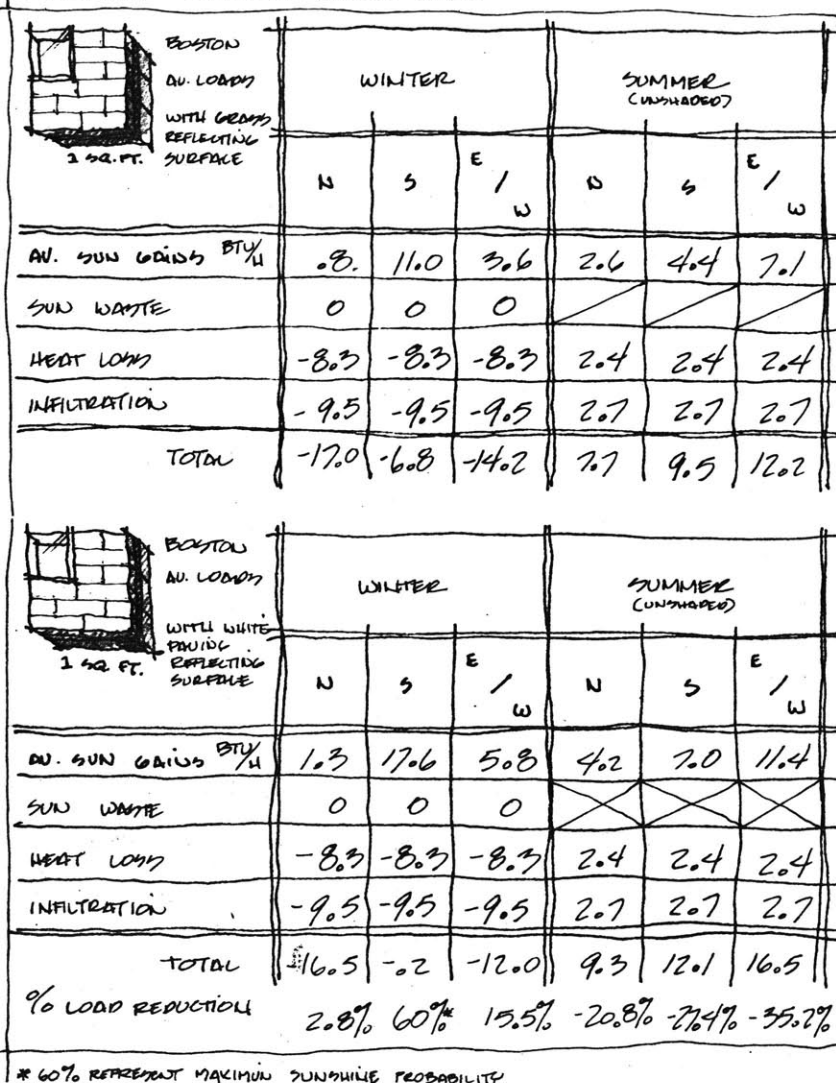 BOSTON
AV. LOADS
WITH GRASS
REFLECTING
SURFACE
1 SQ. FT.
WINTER SUMMER
(UNSHADED)
N S E/W N S E/W
AV. SUN GAINS BTU/H .8. 11.0 3.6 2.6 4.4 7.1
SUN WASTE 0 0 0
HEAT LOSS -8.3 -8.3 -8.3 2.4 2.4 2.4
INFILTRATION -9.5 -9.5 -9.5 2.7 2.7 2.7
TOTAL -17.0 -6.8 -14.2 7.7 9.5 12.2
BOSTON
AV. LOADS
WITH WHITE
PAVING
REFLECTING
SURFACE
1 SQ FT.
WINTER SUMMER
(UNSHADED)
N S E/W N S E/W
AV. SUN GAINS BTU/H 1.3 17.6 5.8 4.2 7.0 11.4
SUN WASTE 0 0 0
HEAT LOSS -8.3 -8.3 -8.3 2.4 2.4 2.4
INFILTRATION -9.5 -9.5 -9.5 2.7 2.7 2.7
TOTAL -16.5 -.2 -12.0 9.3 12.1 16.5
% LOAD REDUCTION 2.8% 60%* 15.5% -20.8% -27.4% -35.2%
* 60% REPRESENT MAXIMUN SUNSHINE PROBABILITY